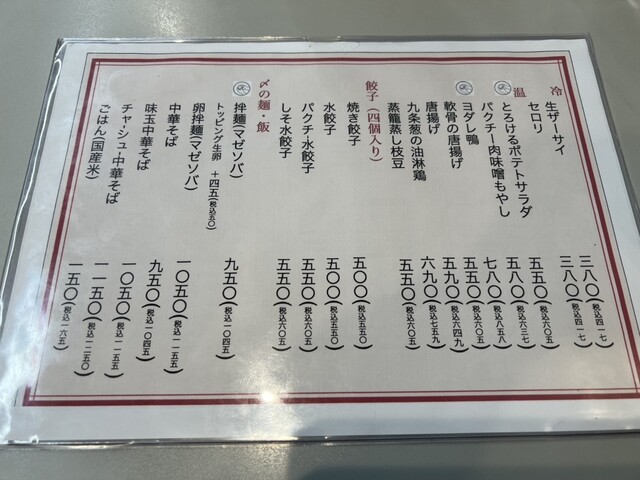 冷
生ザーサイ 三八〇(税込四一七)
セロリ 三八〇(税込四一七)
温
とろけるポテトサラダ 五五〇(税込六〇五)
パクチー肉味噌もやし 五八〇(税込六三七)
ヨダレ鴨 七八〇(税込八五八)
軟骨の唐揚げ 五五〇(税込六〇五)
唐揚げ 五九〇(税込六四九)
九条葱の油淋鶏 六九〇(税込七五九)
蒸籠蒸し枝豆 五五〇(税込六〇五)
餃子(四個入り)
焼き餃子 五〇〇(税込五五〇)
水餃子 五〇〇(税込五五〇)
パクチー水餃子 五五〇(税込六〇五)
しそ水餃子 五五〇(税込六〇五)
〆の麺・飯
拌麺(マゼソバ) 九五〇(税込一〇四五)
トッピング生卵 +四五(税込五〇)
卵拌麺(マゼソバ) 一〇五〇(税込一一五五)
中華そば 九五〇(税込一〇四五)
味玉中華そば 一〇五〇(税込一一五五)
チャシュ・中華そば 一一五〇(税込一二五〇)
ごはん(国産米) 一五〇(税込一六五)